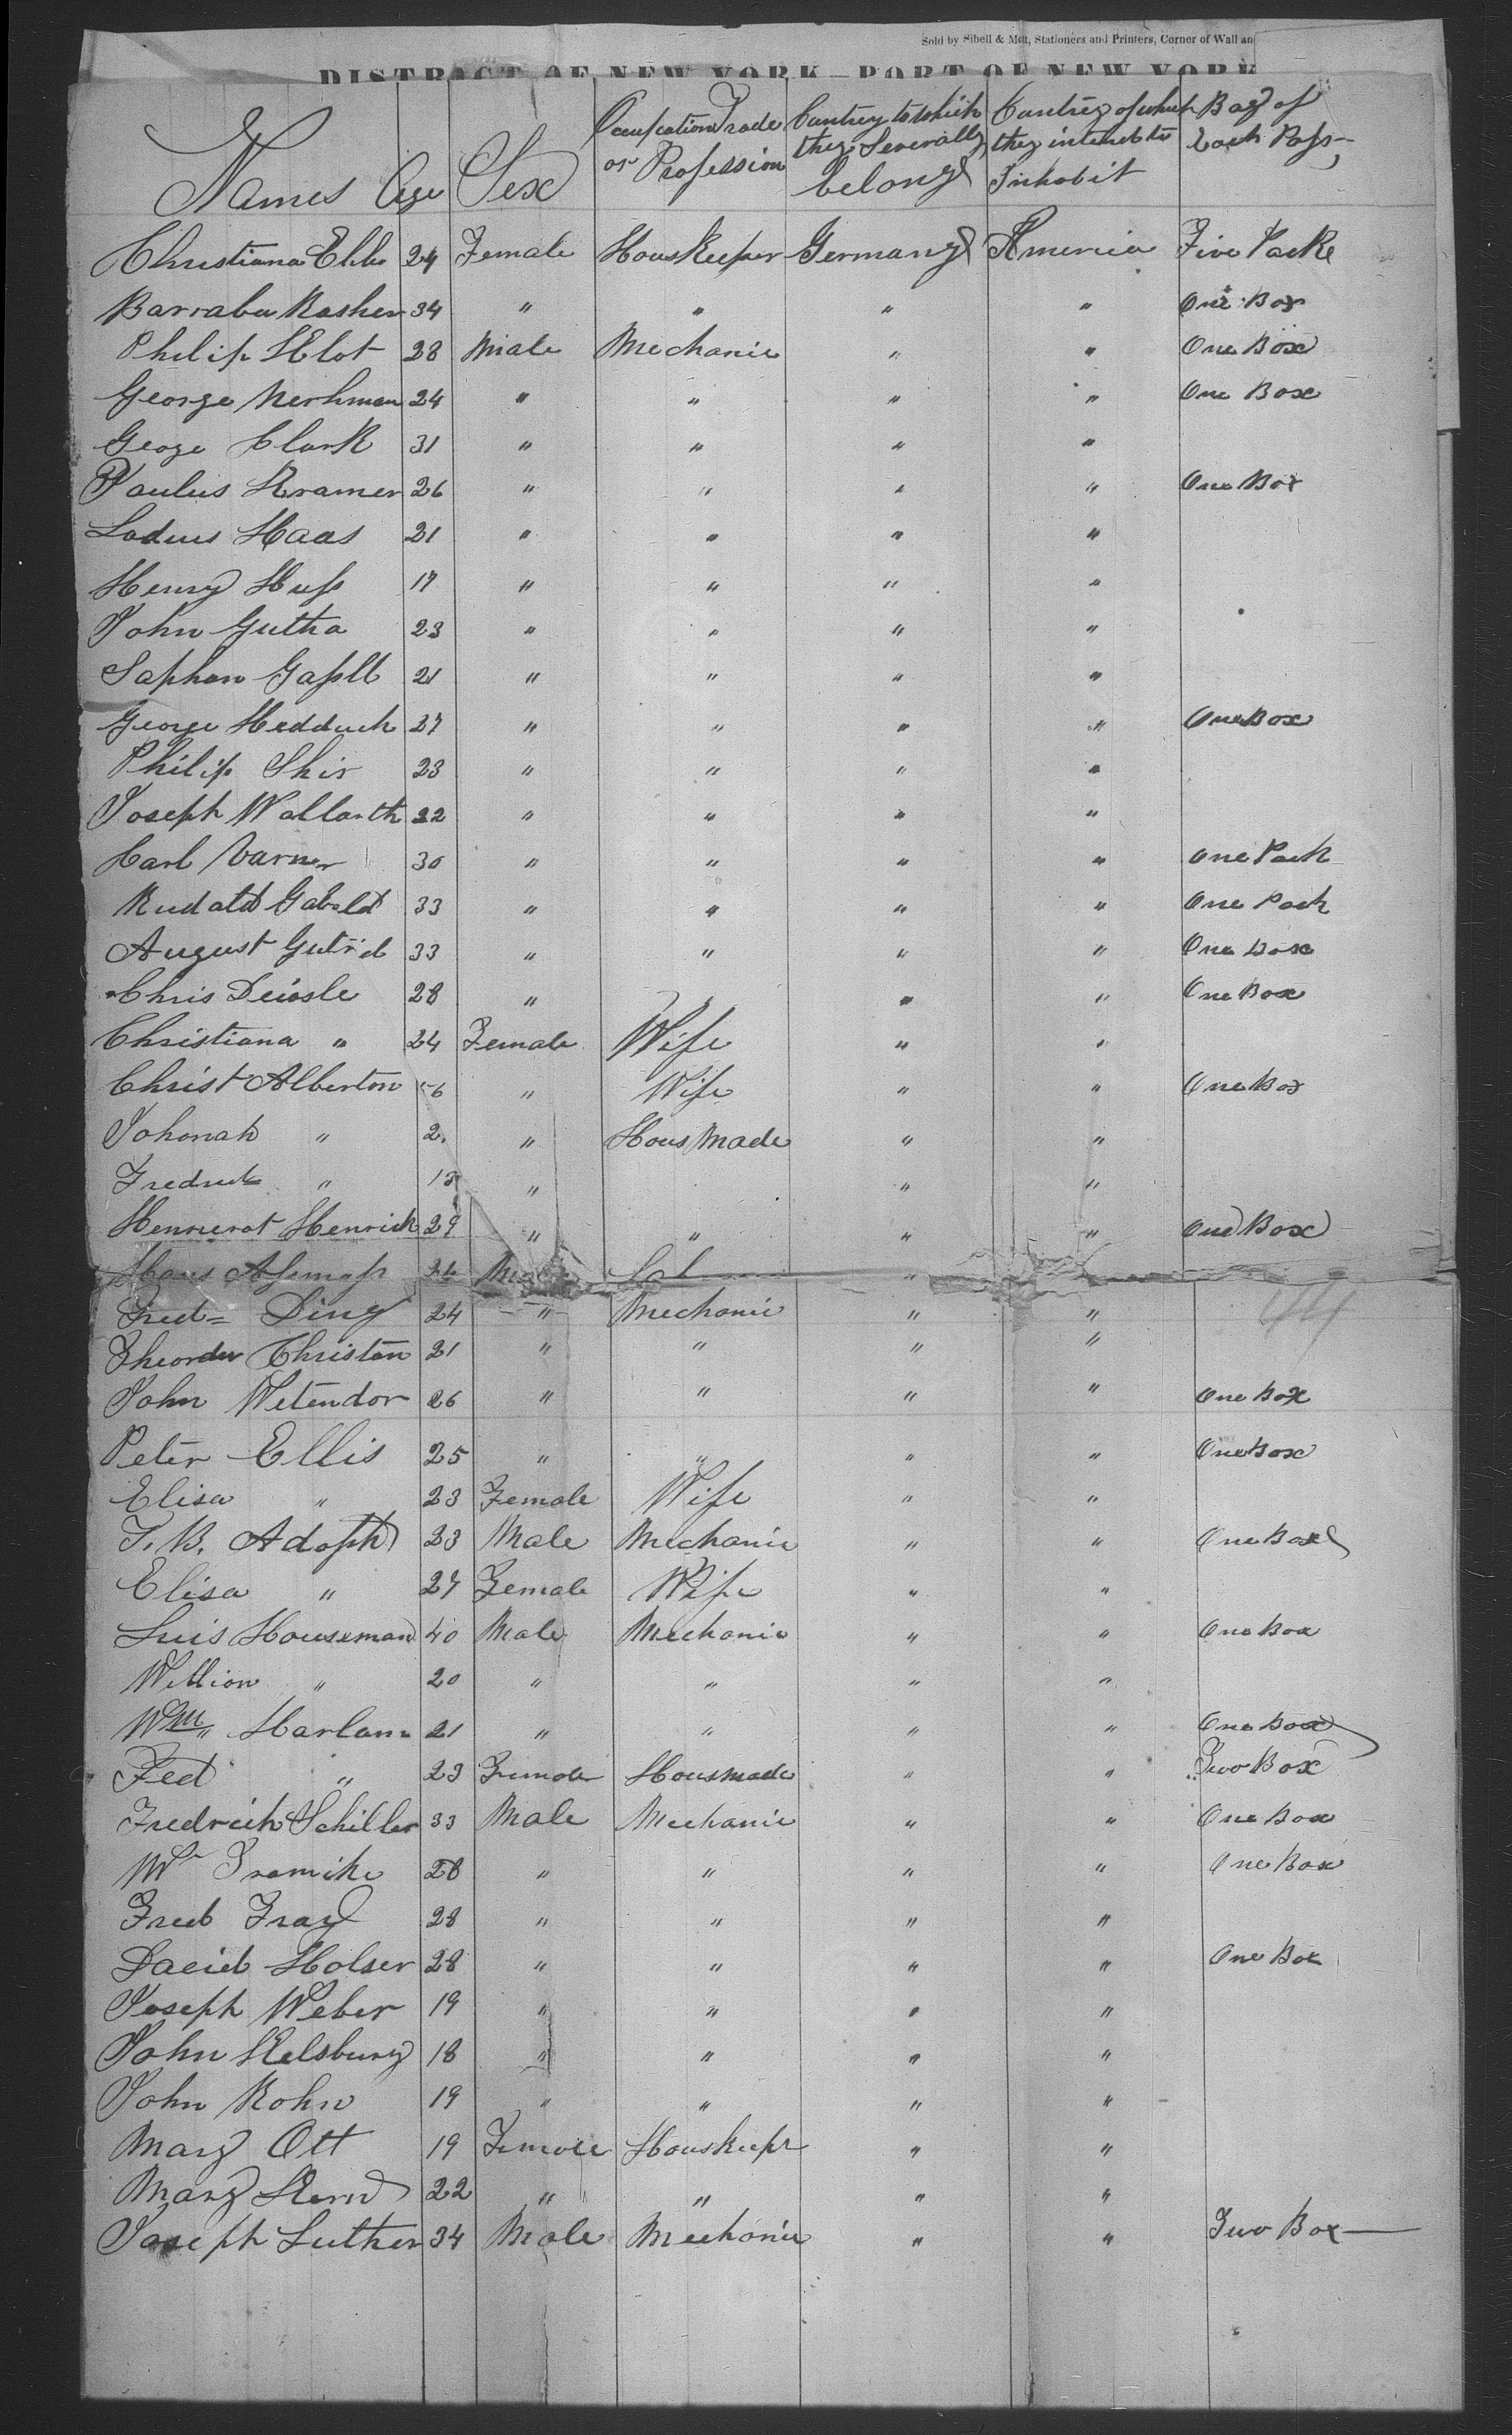 Sold by Sibell & Mott, Stationers and Printers, Corner of Wall an
DISTRICT OF NEW YORK—PORT OF NEW YORK
Names Age Sex Occupation Trade or Profession Cuntrey to which they Severally belong Cuntrey of which they intend to Inhabit Bag of Each Pass
Christiana 24 Female HousKeeper Germany America Five Packe
34 " " " " One Box
Philip Klot 28 Male Mechanic " " One Box
George Nerhman 24 " " " " One Box
Geoge Clark 31 " " " "
Paulus Kramer 26 " " " " One Box
Haas 21 " " " "
Henry Huss 17 " " " "
John Gutha 23 " " " "
Saphan 21 " " " "
George Hedduch 27 " " " " One Box
Philip Shir 23 " " " "
Joseph Wallarth 22 " " " "
Carl Varner 30 " " " " One Pack
Gabold 33 " " " " One Pack
August 33 " " " " One Box
Chris Deissle 28 " " " " One Box
Christiana " 24 Female Wife " "
Christ Alberton 56 " Wife " " One Box
Johonah " " Hous Made " "
" " " "
Henrick 29 " " " " One Box
"
Fred= Ding 24 " Mechanic " "
Christan 21 " " " "
John Wetendor 26 " " " " One Box
Peter Ellis 25 " " " " One Box
Elisa " 23 Female Wife " "
23 Male Mechanic " " One Box
Elisa " 27 Female Wife " "
Luis Houseman 40 Male Mechanic " " One Box
Willion " 20 " " " "
Wm Harlan 21 " " " " One Box
Fed " 23 Female Housmade " " Two Box
Fredreich Schiller 33 Male Mechanic " " One Box
Wm 28 " " " " One Box
Fred Fray 28 " " " "
David Holser 28 " " " " One Box
Joseph Weber 19 " " " "
John Kelsburg 18 " " " "
John Kohn 19 " " " "
Mary Ott 19 Female Houskeepr " "
Mary Kern 22 " " " "
Joseph Luther 34 Male Mechanic " " Two Box